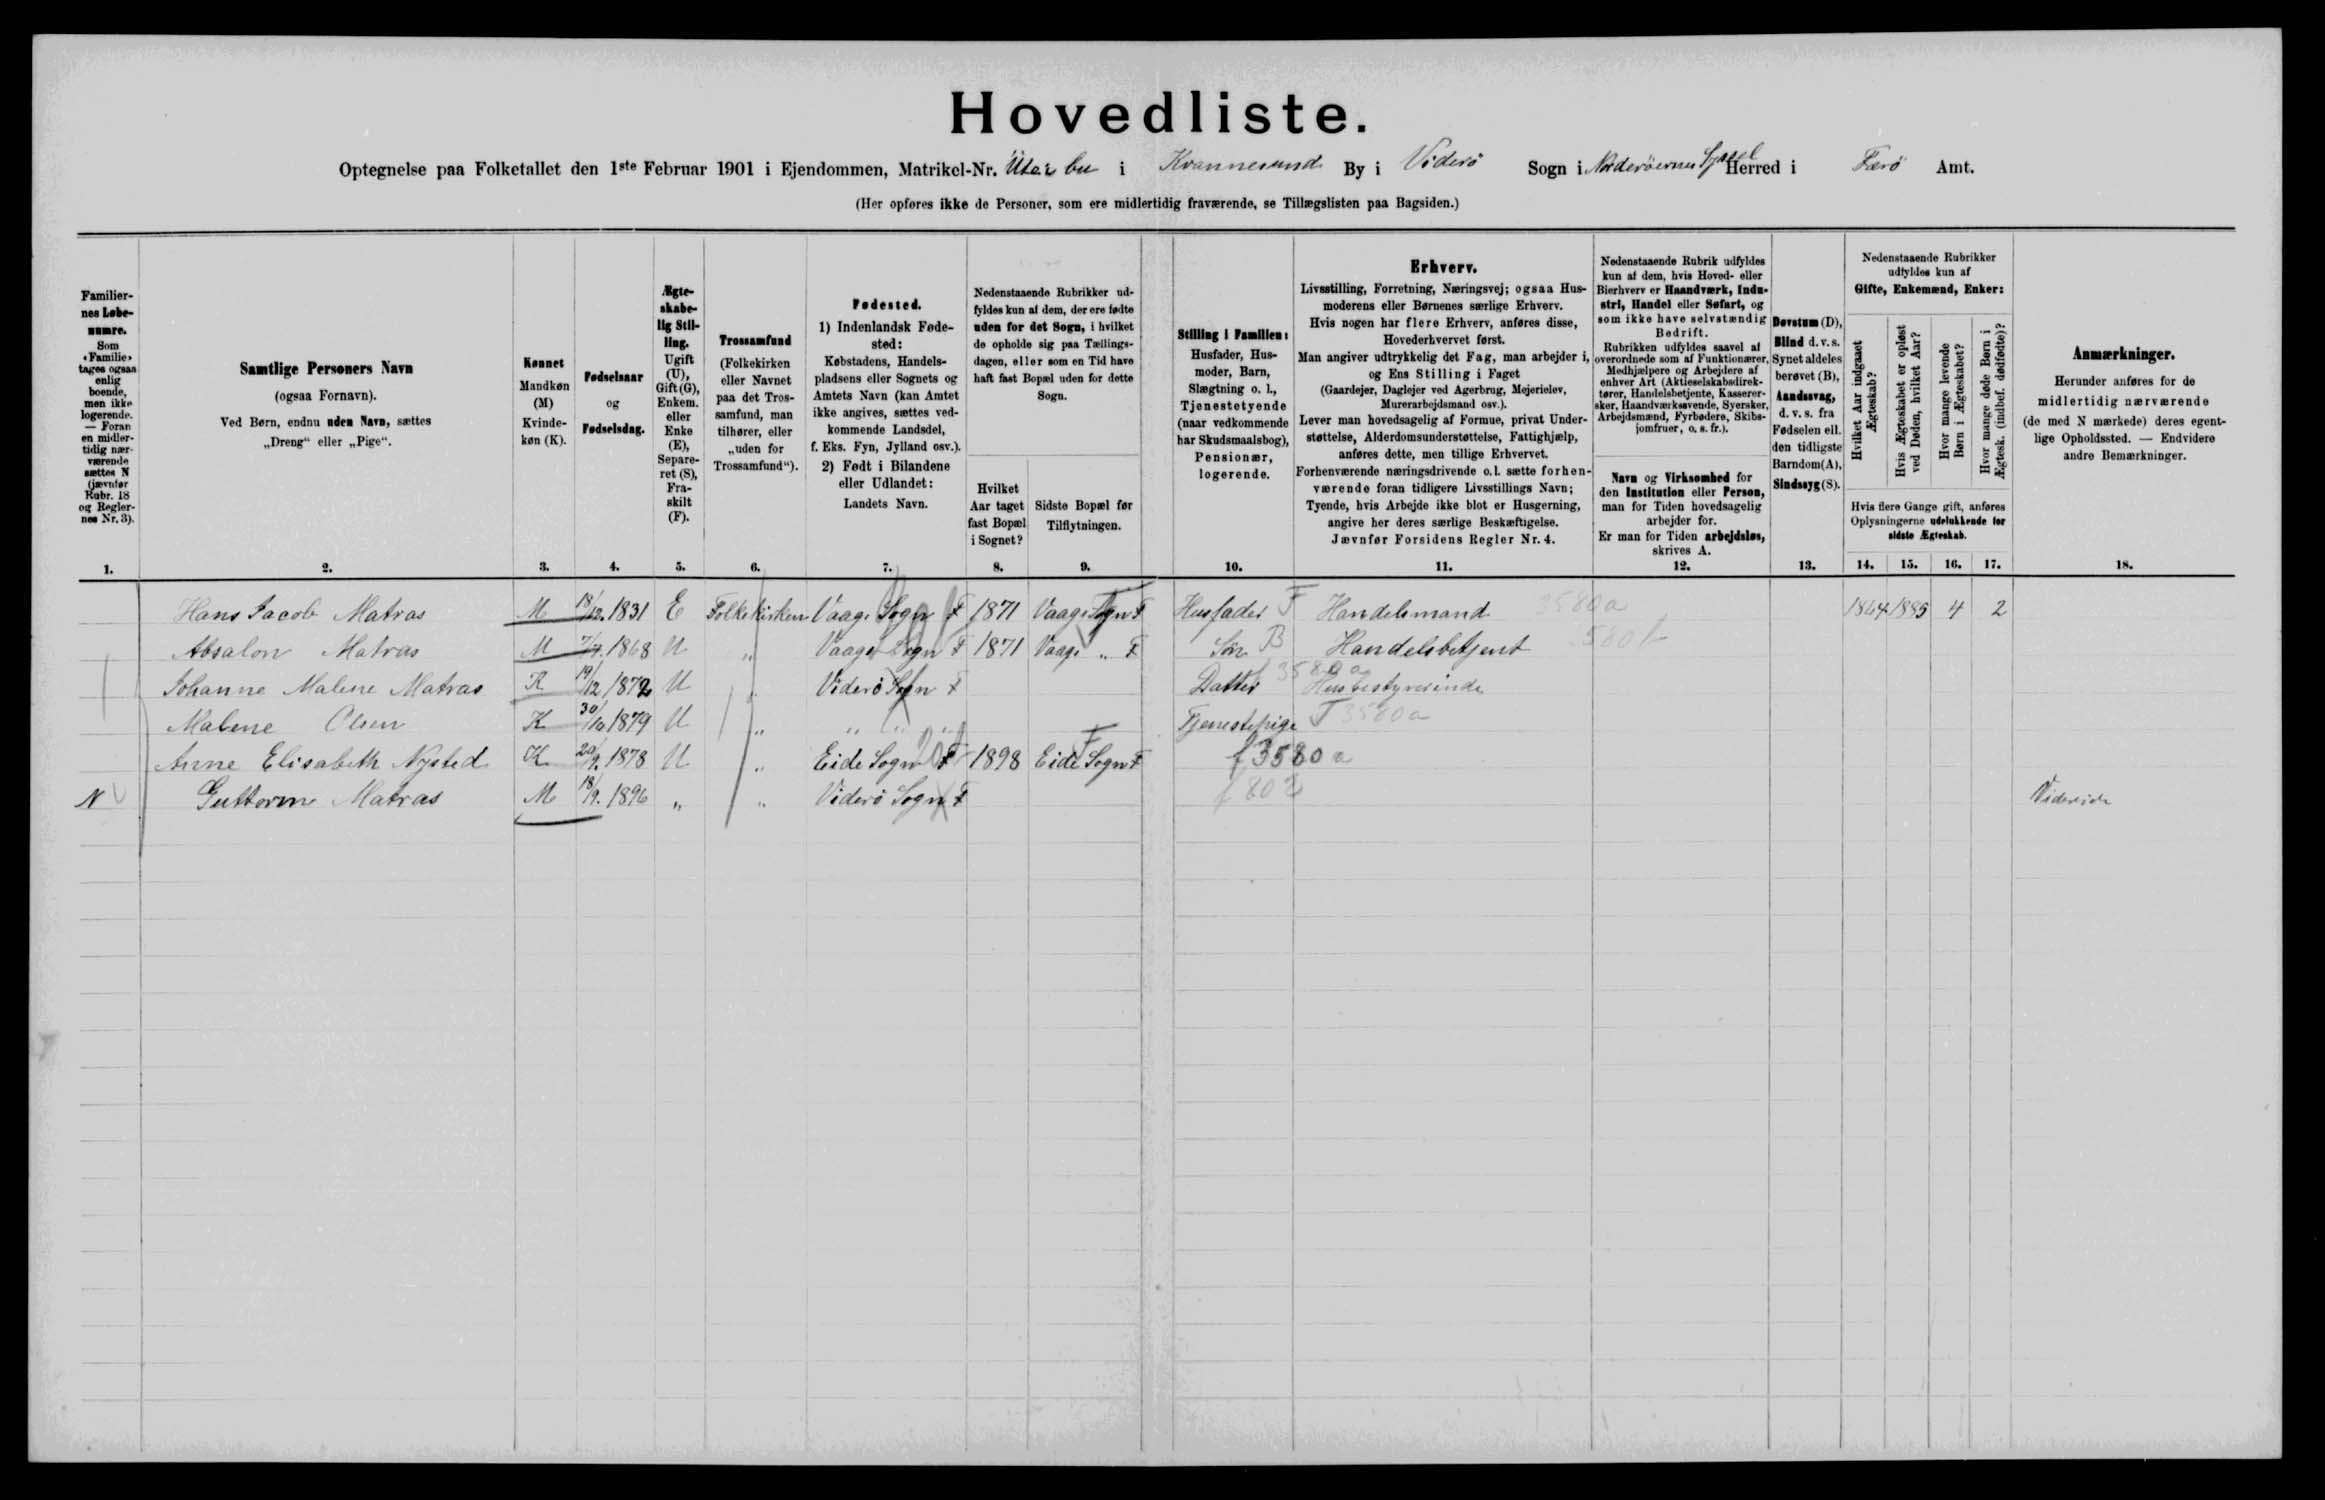 Hovedliste.
Optegnelse paa Folketallet den 1ste Februar 1901 i Ejendommen, Matrikel-Nr. bu i Kvannesund By i Viderö Sogn i Norderöernes Syssel Herred i Færö Amt.
(Her opføres ikke de Personer, som ere midlertidig fraværende, se Tillægslisten paa Bagsiden.)
Familiernes Løbenumre.
Som «Familie» tages ogsaa enlig boende, men ikke logerende. — Foran en midlertidig nærværende sættes N (jævnfør Rubr. 18 og Reglernes Nr. 3).
Samtlige Personers Navn
(ogsaa Fornavn).
Ved Børn, endnu uden Navn, sættes
„Dreng“ eller „Pige“.
Kønnet
Mandkøn (M)
Kvindekøn (K).
Fødselsaar
og
Fødselsdag.
Ægteskabelig Stilling.
Ugift (U), Gift (G), Enkem. eller Enke (E), Separeret (S), Fraskilt (F).
Trossamfund
(Folkekirken eller Navnet paa det Trossamfund, man tilhører, eller „uden for Trossamfund“).
Fødested.
1) Indenlandsk Fødested:
Købstadens, Handelspladsens eller Sognets og Amtets Navn (kan Amtet ikke angives, sættes vedkommende Landsdel, f. Eks. Fyn, Jylland osv.).
2) Født i Bilandene eller Udlandet:
Landets Navn.
Nedenstaaende Rubrikker udfyldes kun af dem, der ere fødte uden for det Sogn, i hvilket de opholde sig paa Tællingsdagen, eller som en Tid have haft fast Bopæl uden for dette Sogn.
Hvilket Aar taget fast Bopæl i Sognet?
Sidste Bopæl før Tilflytningen.
Stilling i Familien:
Husfader, Husmoder, Barn, Slægtning o. l., Tjenestetyende (naar vedkommende har Skudsmaalsbog), Pensionær, logerende.
Erhverv.
Livsstilling, Forretning, Næringsvej; ogsaa Husmoderens eller Børnenes særlige Erhverv.
Hvis nogen har flere Erhverv, anføres disse, Hovederhvervet først.
Man angiver udtrykkelig det Fag, man arbejder i, og Ens Stilling i Faget
(Gaardejer, Daglejer ved Agerbrug, Mejerielev, Murerarbejdsmand osv.).
Lever man hovedsagelig af Formue, privat Understøttelse, Alderdomsunderstøttelse, Fattighjælp, anføres dette, men tillige Erhvervet.
Forhenværende næringsdrivende o. l. sætte forhenværende foran tidligere Livsstillings Navn;
Tyende, hvis Arbejde ikke blot er Husgerning, angive her deres særlige Beskæftigelse.
Jævnfør Forsidens Regler Nr. 4.
Nedenstaaende Rubrik udfyldes kun af dem, hvis Hoved- eller Bierhverv er Haandværk, Industri, Handel eller Søfart, og som ikke have selvstændig Bedrift.
Rubrikken udfyldes saavel af overordnede som af Funktionærer, Medhjælpere og Arbejdere af enhver Art (Aktieselskabsdirektører, Handelsbetjente, Kasserersker, Haandværkssvende, Syersker, Arbejdsmænd, Fyrbødere, Skibsjomfruer, o. s. fr.).
Navn og Virksomhed for den Institution eller Person, man for Tiden hovedsagelig arbejder for.
Er man for Tiden arbejdsløs, skrives A.
Døvstum (D), Blind d. v. s. Synet aldeles berøvet (B), Aandssvag, d. v. s. fra Fødselen ell. den tidligste Barndom (A), Sindssyg (S).
Nedenstaaende Rubrikker udfyldes kun af
Gifte, Enkemænd, Enker:
Hvilket Aar indgaaet Ægteskab?
Hvis Ægteskabet er opløst ved Døden, hvilket Aar?
Hvor mange levende Børn i Ægteskabet?
Hvor mange døde Børn i Ægtesk. (indbef. dødfødte)?
Hvis flere Gange gift, anføres Oplysningerne udelukkende for sidste Ægteskab.
Anmærkninger.
Herunder anføres for de midlertidig nærværende (de med N mærkede) deres egentlige Opholdssted. — Endvidere andre Bemærkninger.
1. 2. 3. 4. 5. 6. 7. 8. 9. 10. 11. 12. 13. 14. 15. 16. 17. 18.
Hans Jacob Matras M 18/12. 1831 E Folkekirken Vaage Sogn F 1871 Vaage Sogn F Husfader F Handelsmand 3580a 1864 1885 4 2
Absalon Matras M 7/4. 1868 U „ Vaage Sogn F 1871 Vaage „ F Søn B Handelsbetjent
Johanne Malene Matras K 19/12 1872 U „ Viderö Sogn F Datter f 3580a Husbestyrerinde
Malene Olsen K 30/10 1879 U „ „ „ „ Tjenestepige T 3580a
Anne Elisabeth Nysted K 20/9. 1878 U „ Eide Sogn F 1898 Eide Sogn F f 3580a
N Guttorm Matras M 18/9. 1896 „ „ Viderö Sogn F f 802 Videreide